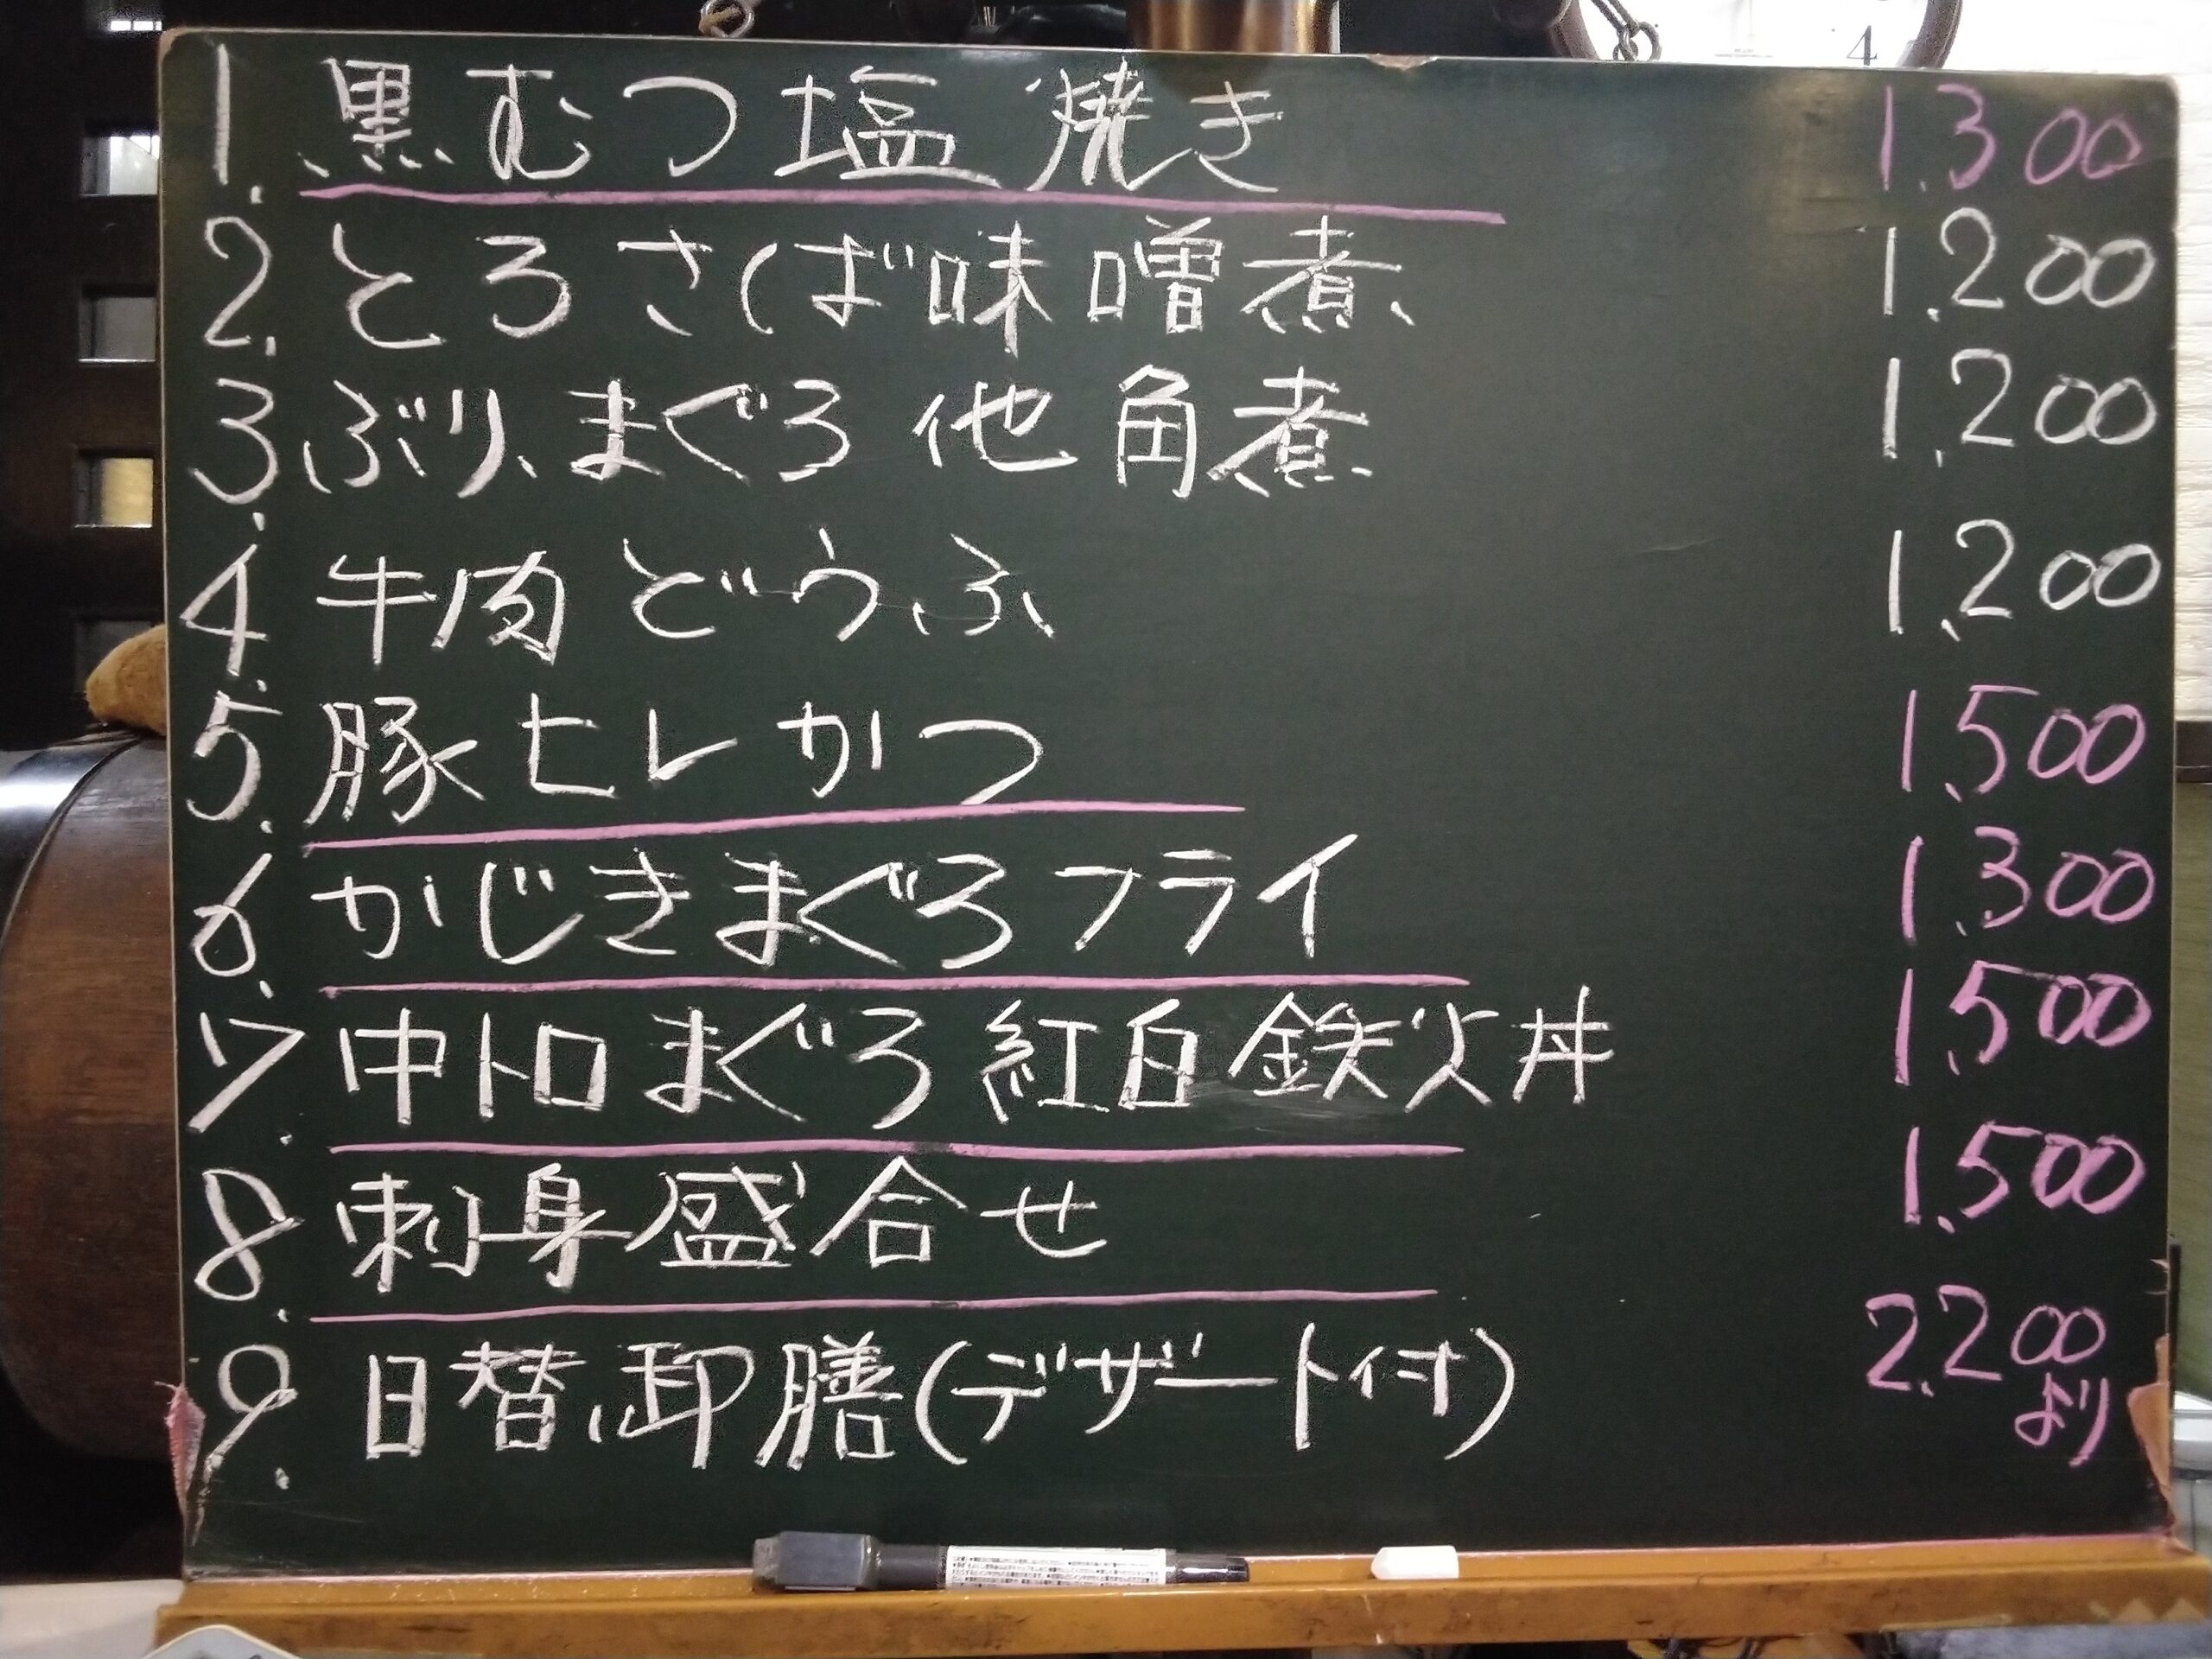 1. 黒むつ塩焼き 1.300
2. とろさば味噌煮 1.200
3. ぶり、まぐろ他角煮 1.200
4. 牛肉どうふ 1.200
5. 豚ヒレかつ 1.500
6. かじきまぐろフライ 1.300
7. 中トロまぐろ紅白鉄火丼 1.500
8. 刺身盛合せ 1.500
9. 日替御膳(デザート付) 2.200
より
4